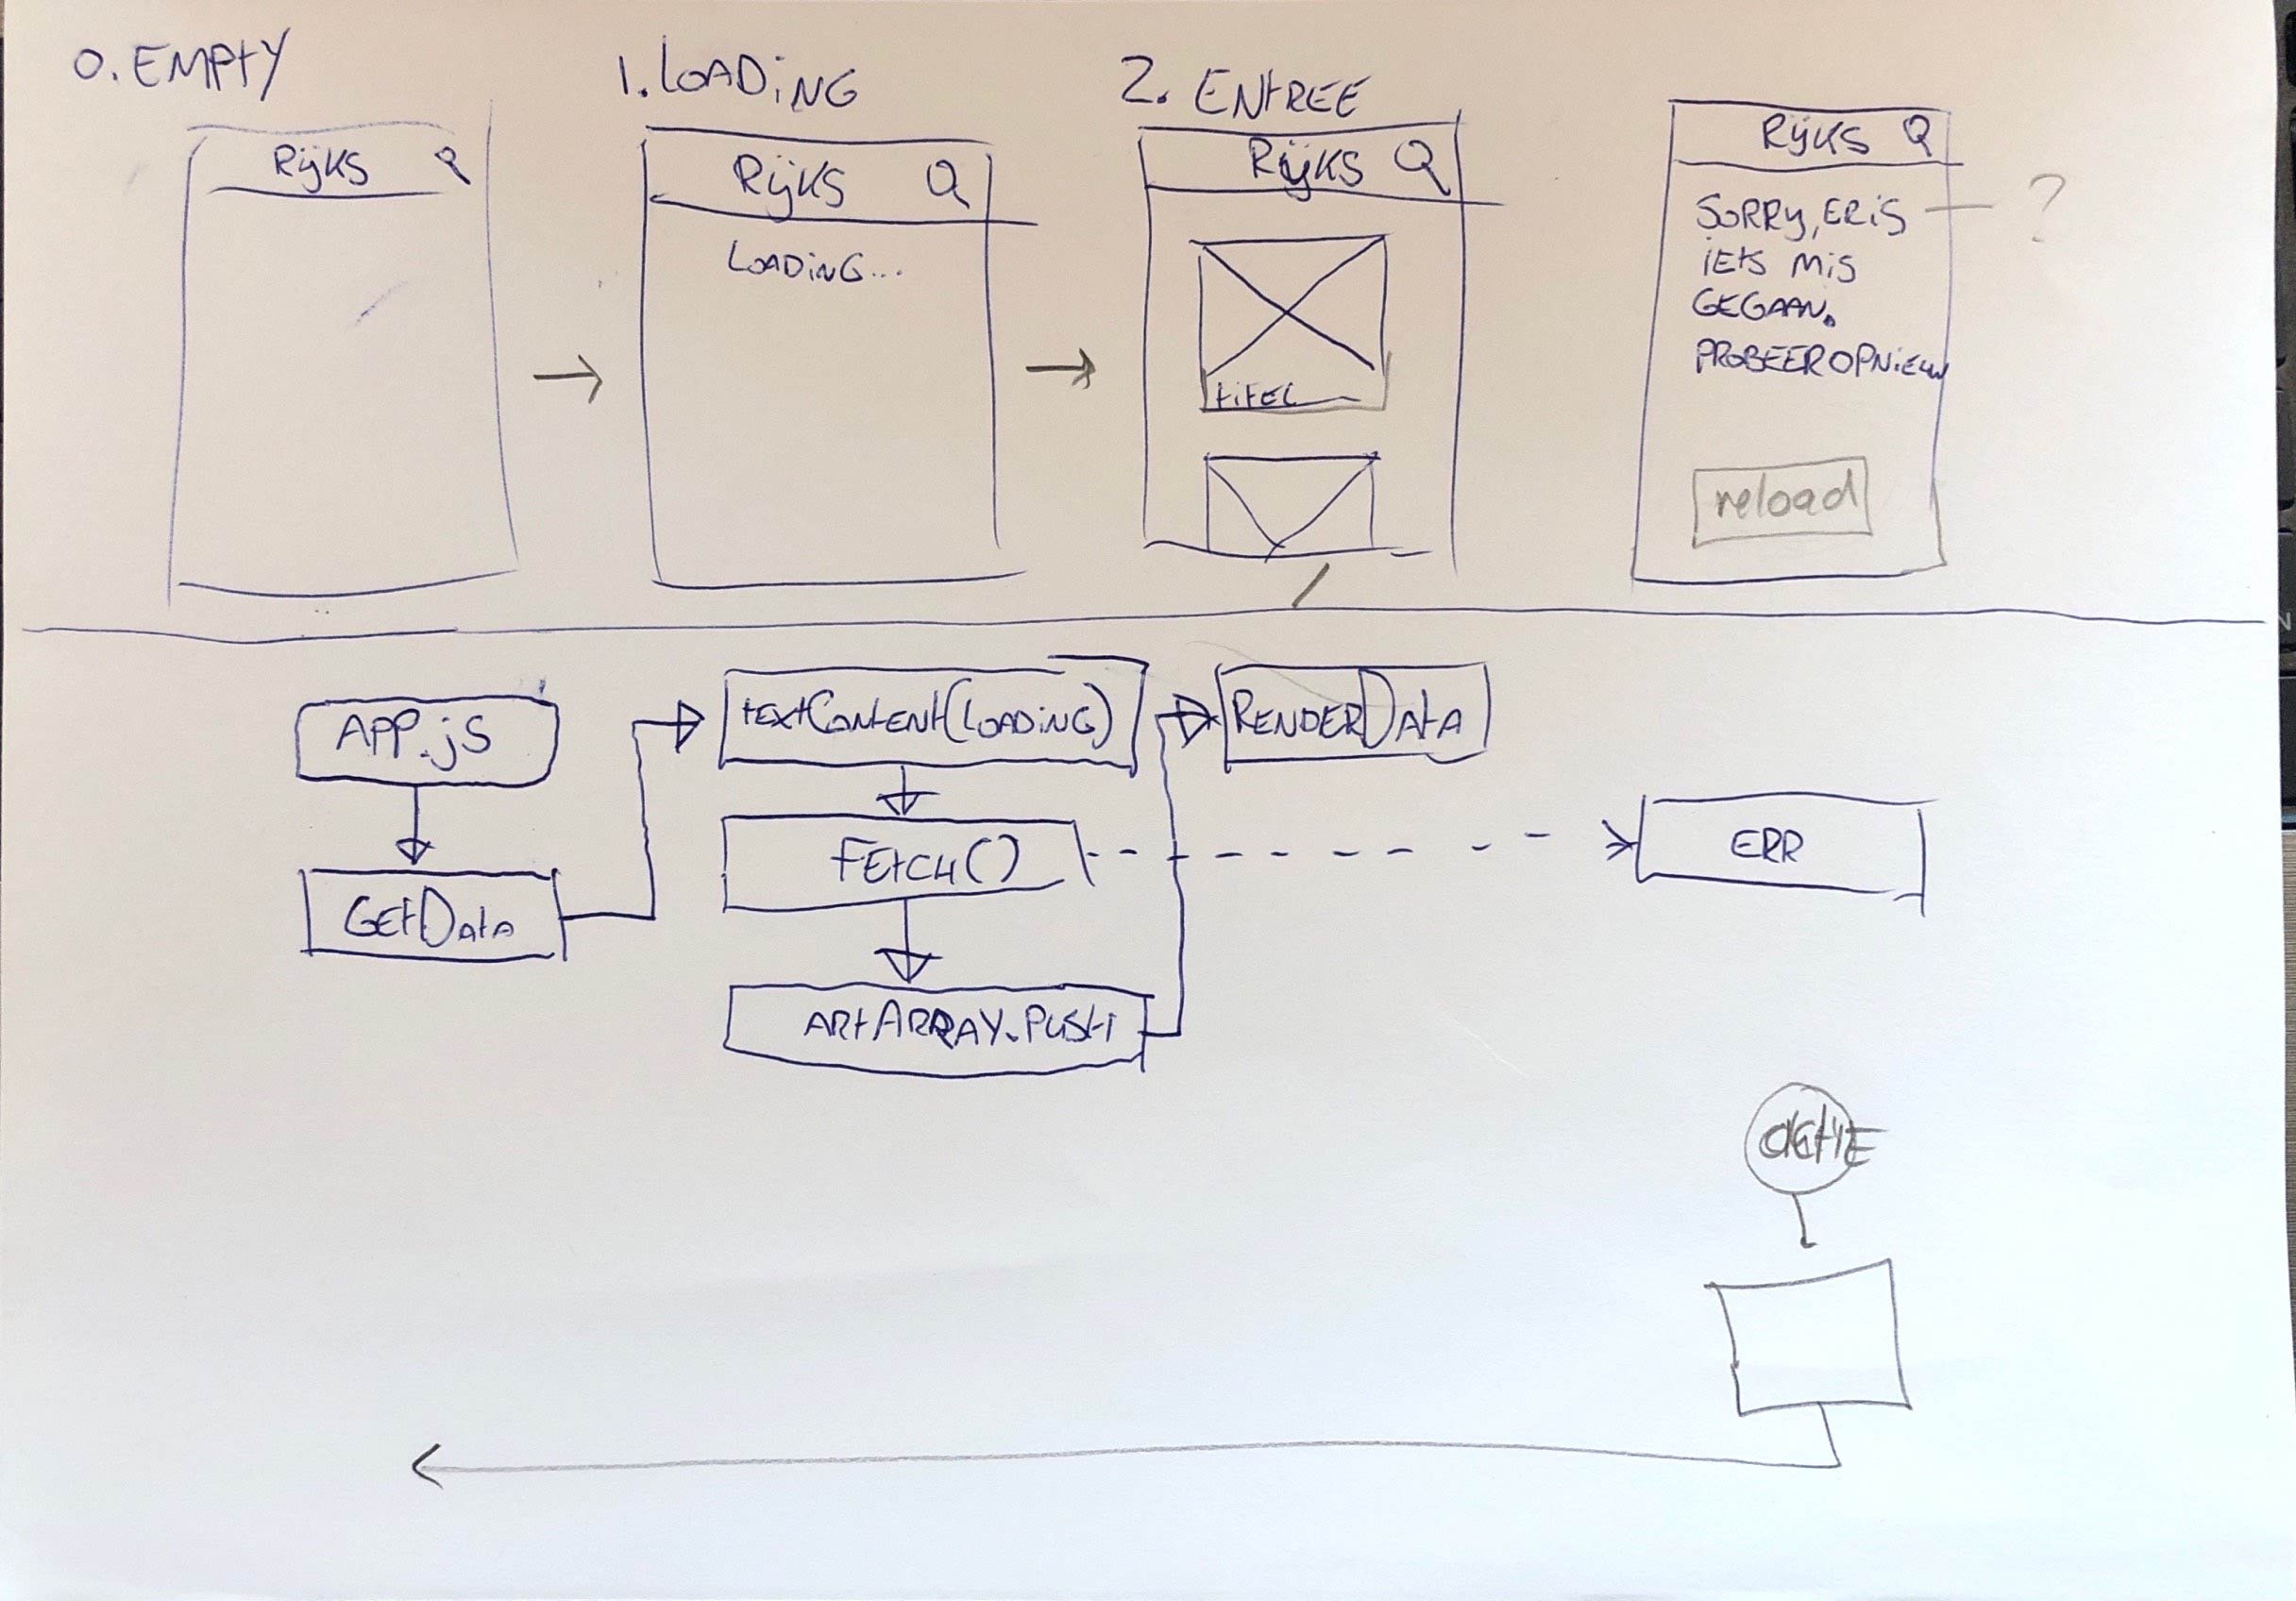 0. EMPtY
1. LOADiNG
2. ENtREE
Rijks
Rijks
LOADiNG...
Rijks
titEL
Rijks
SORRY, ER iS
iEtS MiS
GEGAAN.
PROBEER OPNiEUW
?
reload
APP.jS
GEtData
tEXtContENt(LOADiNG)
FEtCH()
ARtARRAY.PUSH
RENDERData
ERR